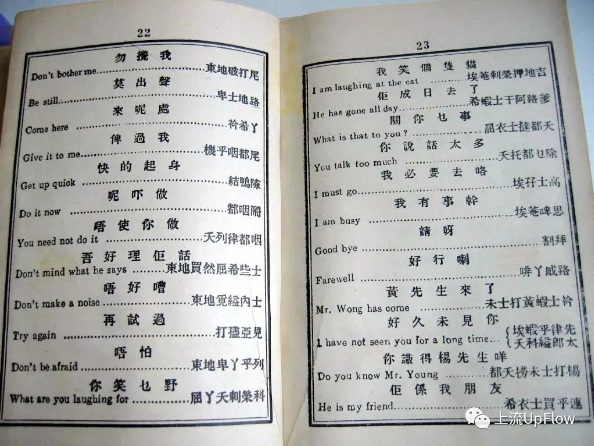 22
勿攪我
Don't bother me 東地破打尾
莫出聲
Be still 卑士地路
來呢處
Come here 衿希丫
俾過我
Give it to me 機乎咽都尾
快的起身
Get up quick
呢吓做
Do it now 都咽
唔使你做
You need not do it 天列律都咽
吾好理佢話
Don't mind what he says 東地買然屈希些士
唔好嘈
Don't make a noise 東地
再試過
Try again 打亞兒
唔怕
Don't be afraid 東地卑丫乎列
你笑乜野
What are you laughing for 屈丫天剌榮科
23
我笑個隻貓
I am laughing at the cat 埃菴剌榮押地吉
佢成日去了
He has gone all day 希蝦士干阿路爹
關你乜事
What is that to you? 屈衣士撻都天
你說話太多
You talk too much 天托都乜除
我必要去咯
I must go 埃孖士高
我有事幹
I am busy 埃菴啤思
請呀
Good bye 割拜
好行喇
Farewell 花丫威路
黃先生來了
Mr. Wong has come 未士打黃蝦士衿
好久未見你
I have not seen you for a long time 埃蝦乎律先 天科亞郎太
你識得楊先生咩
Do you know Mr. Young 都天撈未士打楊
佢係我朋友
He is my friend 希衣士買乎連
上流UpFlow